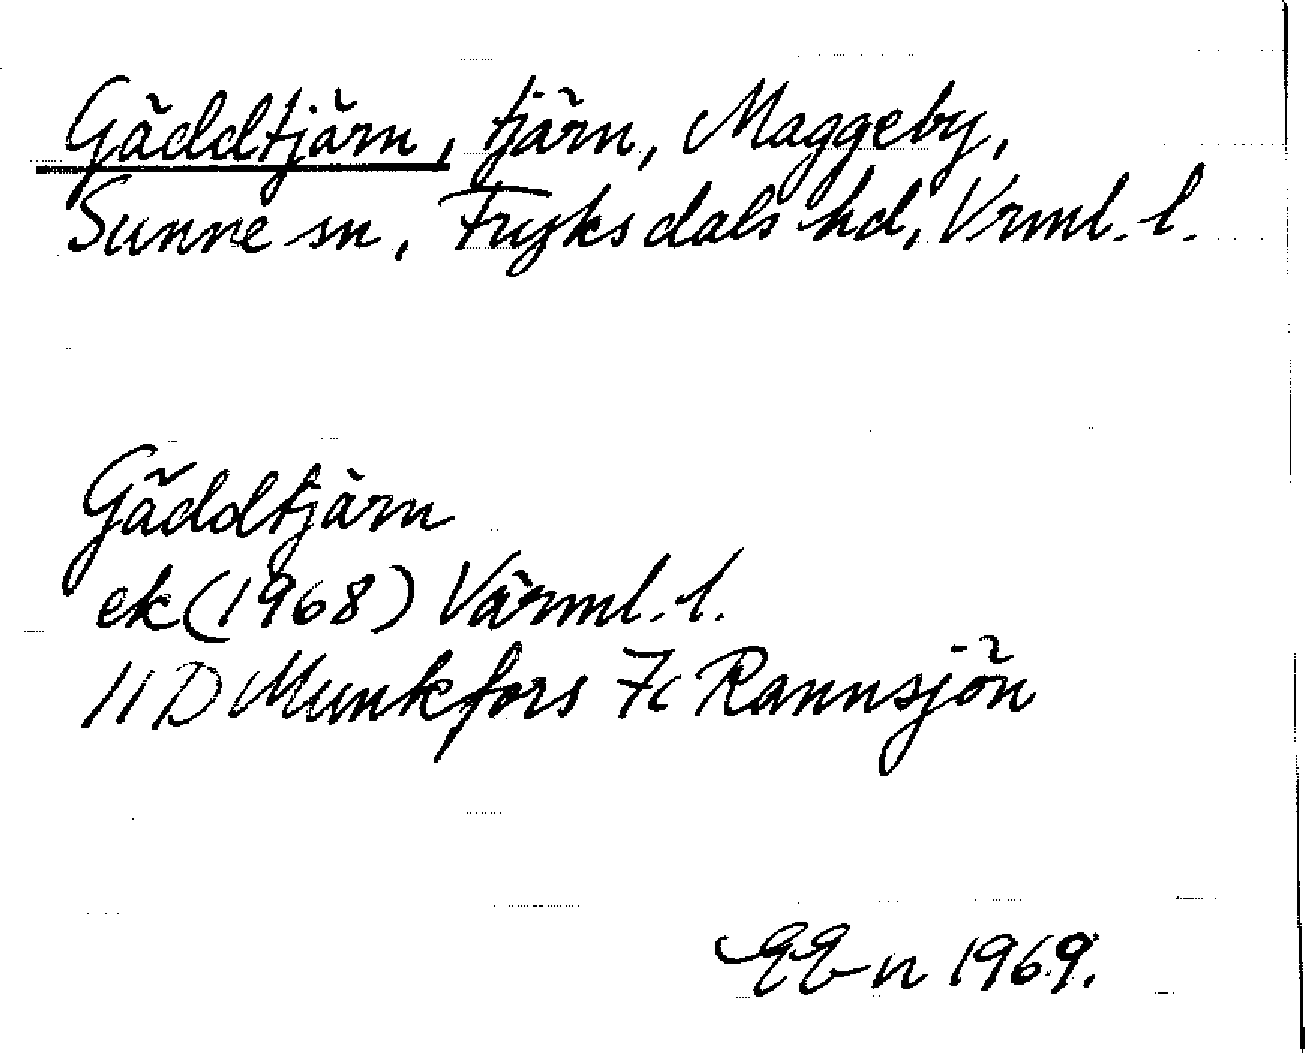 Gäddtjärn, tjärn, Maggeby,
Sunne sn, Fryksdals hd, Vrml. l.
Gäddtjärn
ek (1968) Värml. l.
11 D Munkfors 7c Rannsjön
EEn 1969.